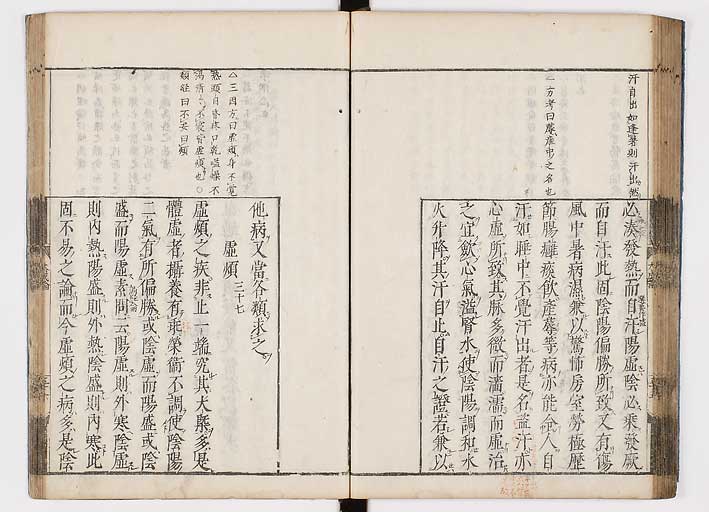 汗自出如逢暑則汗出
必湊發熱而自汗陽虛陰必乘發厥
而自汗此固陰陽偏勝所致又有傷
風中暑病濕兼以驚怖房室勞極歷
節腸癰痰飲產蓐等病亦能令人自
汗如睡中不覺汗出者是名盜汗亦
心虛所致其脉多微而濇濡而虛治
之宜飲心氣溢腎水使陰陽調和水
火升降其汗自止自汗之證若兼以
一方考曰蓐產中之名也
他病又當各類求之
虛煩 三十七
虛煩之疾非止一端究其大槩多是
體虛者攝養有乖榮衛不調使陰陽
二氣有所偏勝或陰虛而陽盛或陰
盛而陽虛素問云陽虛則外寒陰虛
則內熱陽盛則外熱陰盛則內寒此
固不易之論而今虛煩之病多是陰
三因方曰虛煩身不覺
熱頭目昏疼口乾嗌燥不
渴清清不寐皆虛煩也
類註曰不安曰煩